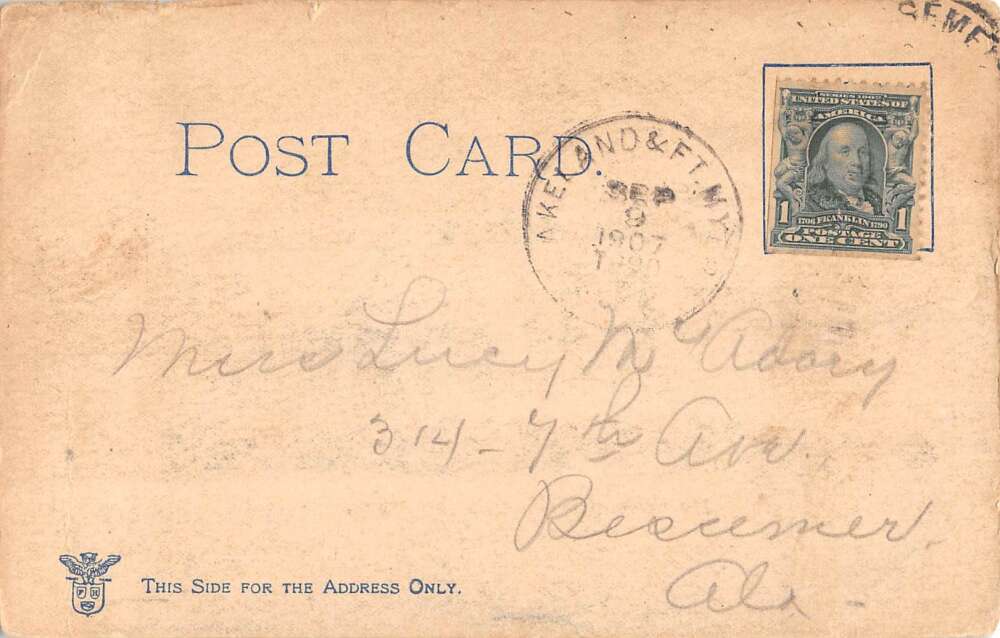 SEME
POST CARD.
AKELAND & FT. MY
SEP
9
1907
SERIES 1902
UNITED STATES OF
AMERICA
1 1706 FRANKLIN 1790 1
POSTAGE
ONE CENT
Miss Lucy McAdory
314-7th Ave.
Bessemer.
Ala -
P H
THIS SIDE FOR THE ADDRESS ONLY.